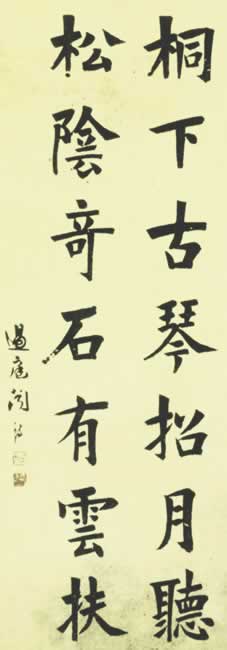 桐下古琴招月聽
松陰奇石有雲扶
過庭